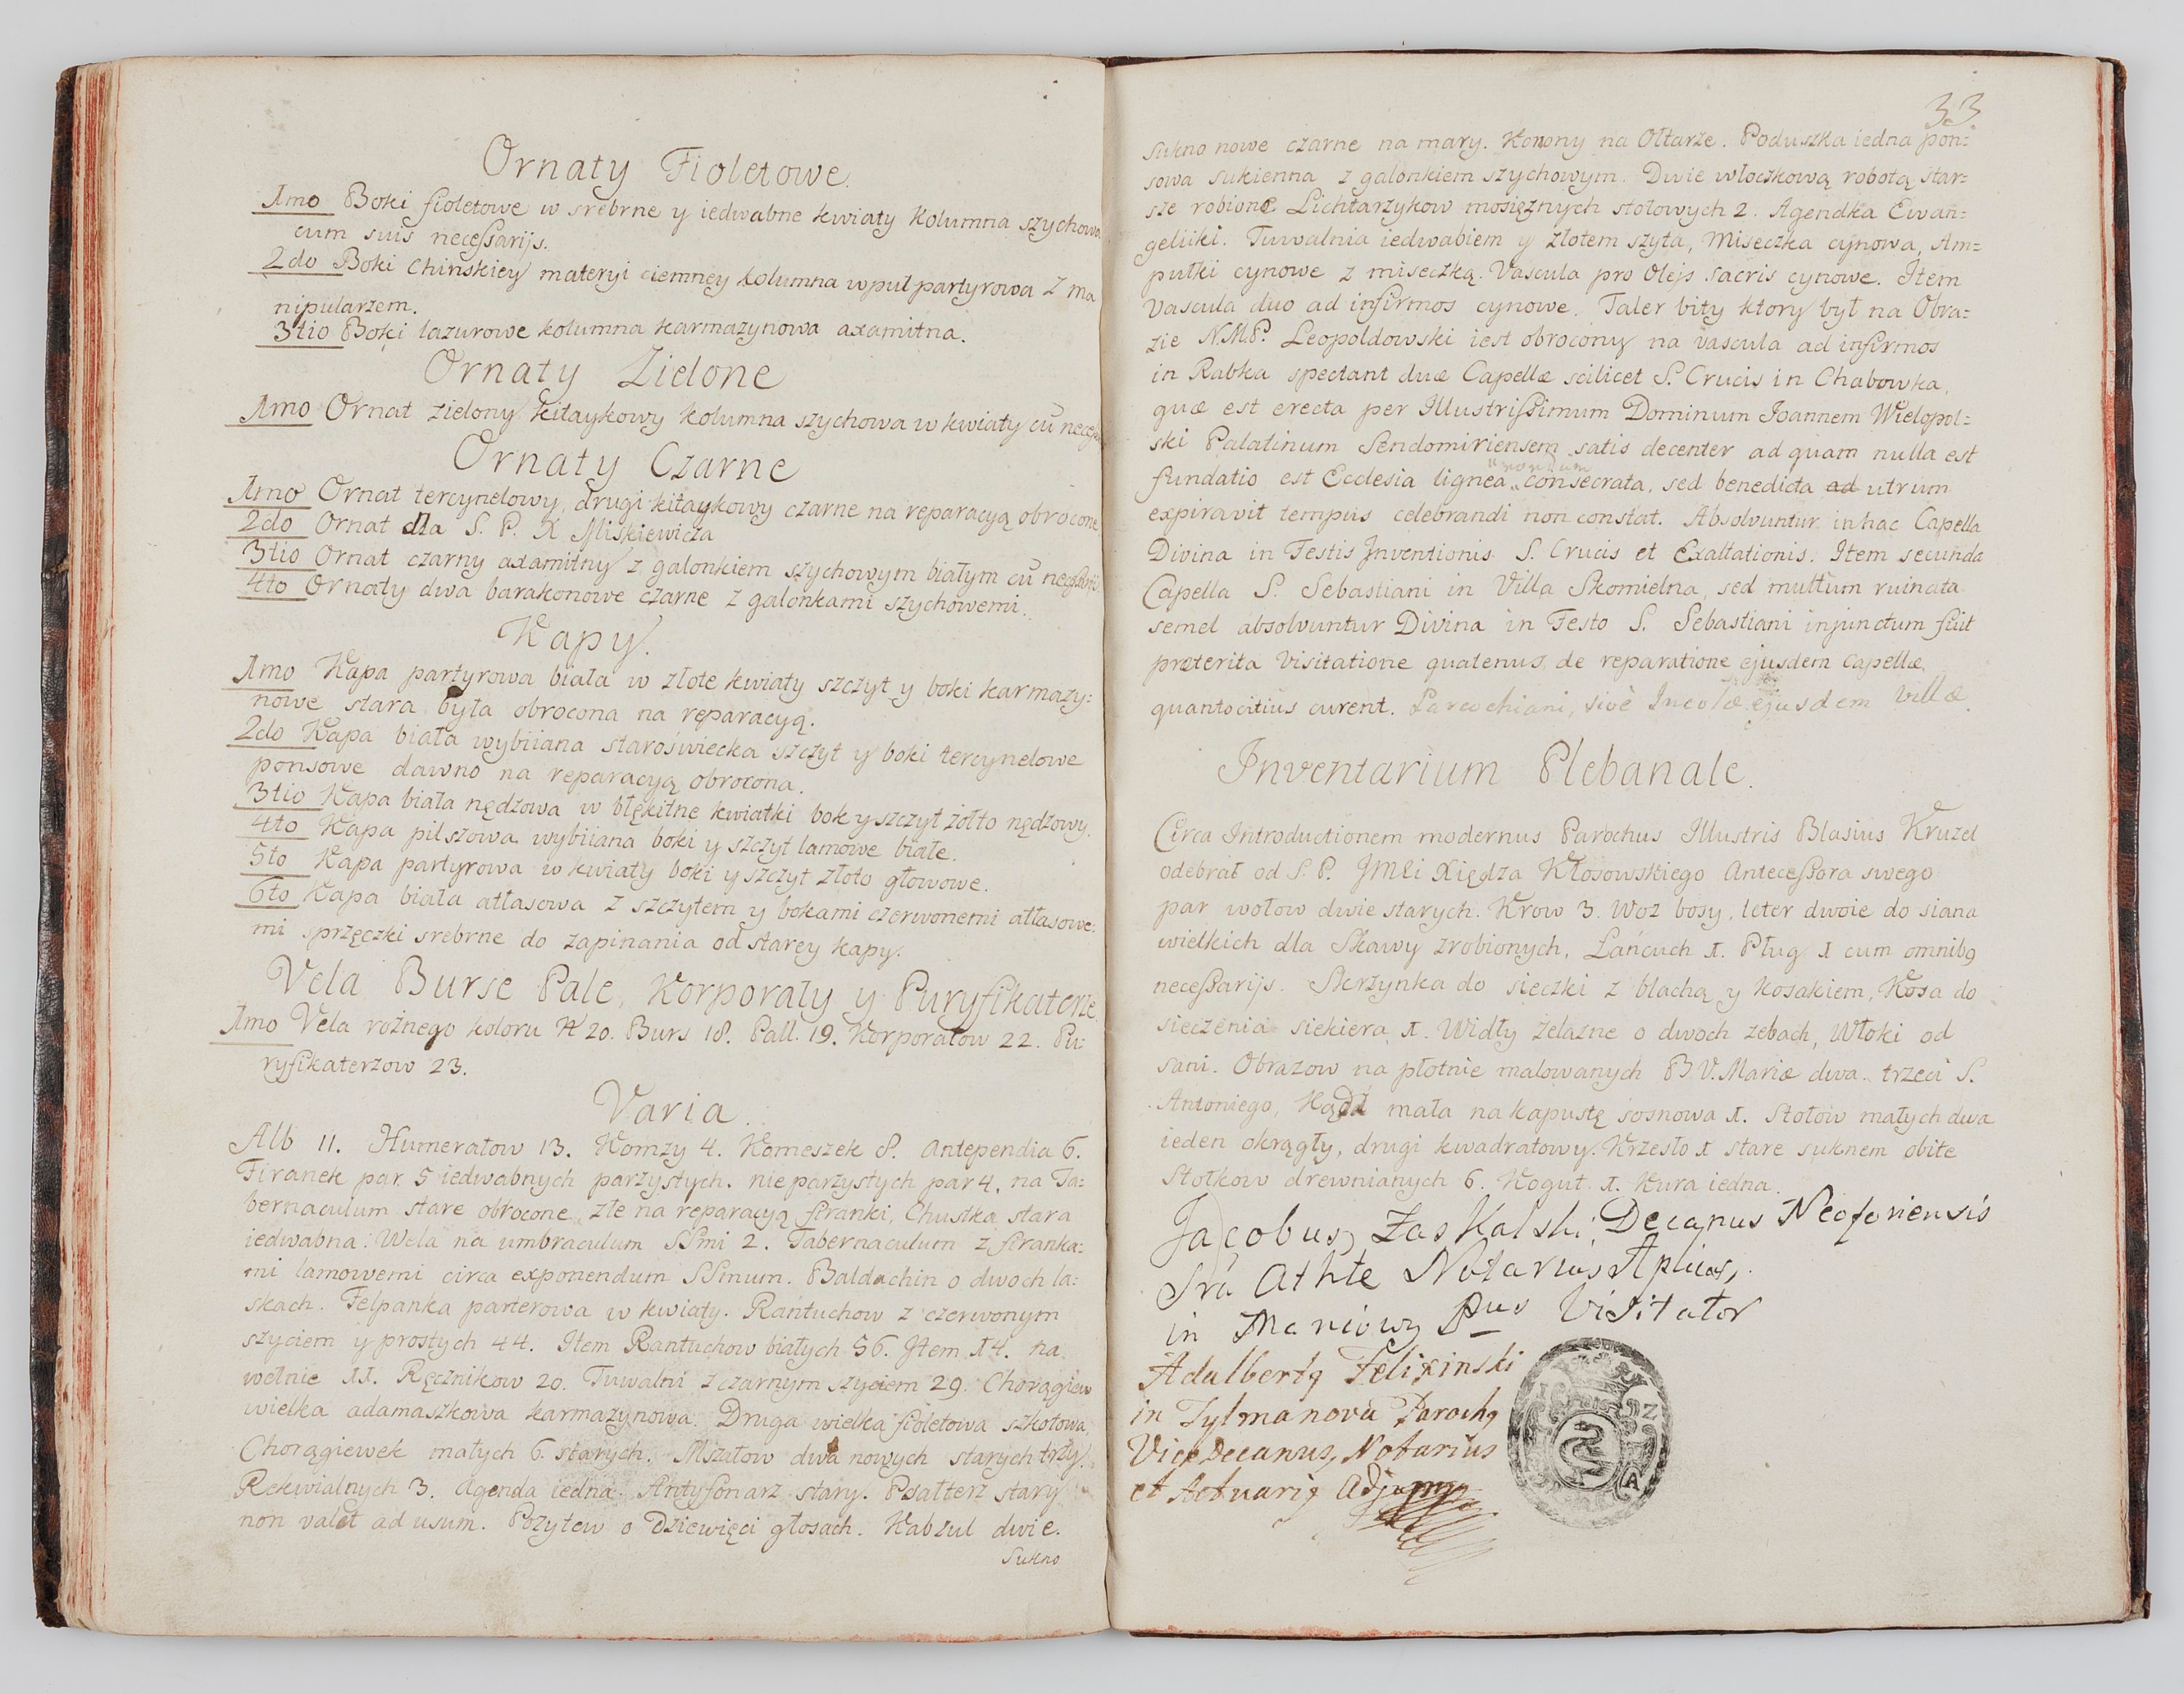 Ornaty Fioletowe.
1mo Boki fioletowe w srebrne y iedwabne kwiaty kolumna szychowa
cum suis necessarijs.
2do Boki Chinskiey materyi ciemney kolumna wpuł partyrowa z ma
nipularzem.
3tio Boki lazurowe kolumna karmazynowa axamitna.
Ornaty Zielone
1mo Ornat zielony kitaykowy kolumna szychowa w kwiaty cū necess
Ornaty Czarne
1mo Ornat tercynelowy, drugi kitaykowy czarne na reparacyą obrocone
2do Ornat dla S. P. X Miskiewicza
3tio Ornat czarny axamitny z galonkiem szychowym białym cū necessarijs
4to Ornaty dwa barakonowe czarne z galonkami szychowemi.
Kapy.
1mo Kapa partyrowa biała w złote kwiaty szczyt y boki karmazy:
nowe stara była obrocona na reparacyą.
2do Kapa biała wybiiana staroświecka szczyt y boki tercynelowe
ponsowe dawno na reparacyą obrocona.
3tio Kapa biała nędzowa w błękitne kwiatki bok y szczyt żółto nędzowy.
4to Kapa pilszowa wybiiana boki y szczyt lamowe białe.
5to Kapa partyrowa w kwiaty boki y szczyt złoto głowowe.
6to Kapa biała atłasowa z szczytem y bokami czerwonemi atłasowe:
mi sprzęczki srebrne do zapinania od starey kapy.
Vela Burse Pale, Korporały y Puryfikaterze.
1mo Vela rożnego koloru N 20. Burs 18. Pall. 19. Korporałow 22. Pu:
ryfikaterzow 23.
Varia.
Alb 11. Humerałow 13. Komzy 4. Komeszek 8. Antependia 6.
Firanek par 5 iedwabnych parzystych. nie parzystych par 4. na Ta:
bernaculum stare obrocone złe na reparacyą firanki, Chustka stara
iedwabna. Wela na umbraculum SSmi 2. Tabernaculum z firanka:
mi lamowemi circa exponendum SSmum. Baldachin o dwoch la:
skach. Felpanka parterowa w kwiaty. Rańtuchow z czerwonym
szyciem y prostych 44. Item Rantuchow białych 56. Item 14. na
wełnie 11. Ręcznikow 20. Tuwalni z czarnym szyciem 29. Chorągiew
wielka adamaszkowa karmazynowa. Druga wielka fioletowa szkotowa,
Chorągiewek małych 6. starych. Mszałow dwa nowych starych trzy.
Rekwialnych 3. Agenda iedna. Antyfonarz stary. Psałterz stary
non valet ad usum. Pozytew o Dziewięci głosach. Kabzul dwie.
Sukno
33
sukno nowe czarne na mary. Korony na Ołtarze. Poduszka iedna pon:
sowa sukienna z galonkiem szychowym. Dwie włoczkową robotą star:
sze robione Lichtarzykow mosiężnych stołowych 2. Agendka Ewan=
geliiki. Tuwalnia iedwabiem y złotem szyta, Miseczka cynowa, Am=
pułki cynowe z miseczką. Vascula pro Olejs sacris cynowe. Item
Vascula duo ad infirmos cynowe. Taler bity ktory był na Obra=
zie N.M.P. Leopoldowski iest obrocony na vascula ad infirmos
in Rabka spectant duæ Capellæ scilicet S. Crucis in Chabowka,
quæ est erecta per Illustrissimum Dominum Joannem Wielopol=
ski Palatinum Sendomiriensem satis decenter ad quam nulla est
nondum
fundatio est Ecclesia lignea consecrata, sed benedicta ad utrum
expiravit tempus celebrandi non constat. Absolvuntur in hac Capella
Divina in Festis Inventionis S. Crucis et Exaltationis. Item secunda
Capella S. Sebastiani in Villa Skomielna, sed multum ruinata
semel absolvuntur Divina in Festo S. Sebastiani injunctum fuit
præterita Visitatione quatenus de reparatione ejusdem Capellæ
quantocitius curent. Parochiani, sivè Incolæ ejusdem Villæ.
Inventarium Plebanale.
Circa Introductionem modernus Parochus Illustris Blasius Kruzel
odebrał od S. P. JMCi Xiędza Kłosowskiego Antecessora swego
par wołow dwie starych. Krow 3. Woz bosy, leter dwoie do siana
wielkich dla Skawy zrobionych, Łańcuch 1. Pług 1 cum omnibq
necessarijs. Skrzynka do sieczki z blachą y kosakiem, Kosa do
sieczenia siekiera 1. Widły żelazne o dwoch zebach, Włoki od
sani. Obrazow na płotnie malowanych B V. Mariæ dwa. trzeci S.
Antoniego, Kądź mała na kapustę sosnowa 1. Stołow małych dwa
ieden okrągły, drugi kwadratowy. Krzesło 1 stare suknem obite
Stołkow drewnianych 6. Kogut 1. Kura iedna.
Jacobus Zaskalski Decanus Neoforiensis
Notarius Aplicus,
in Maniowy Pus Visitator
Adalbertq Felixinski
in Tylmanova Parochq
ViceDecanus, Notarius
et Actuariq
Z
A